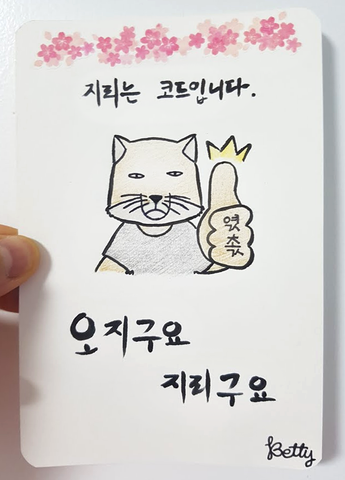 지리는 코드입니다.
엿
촉
오지구요
지리구요
Betty